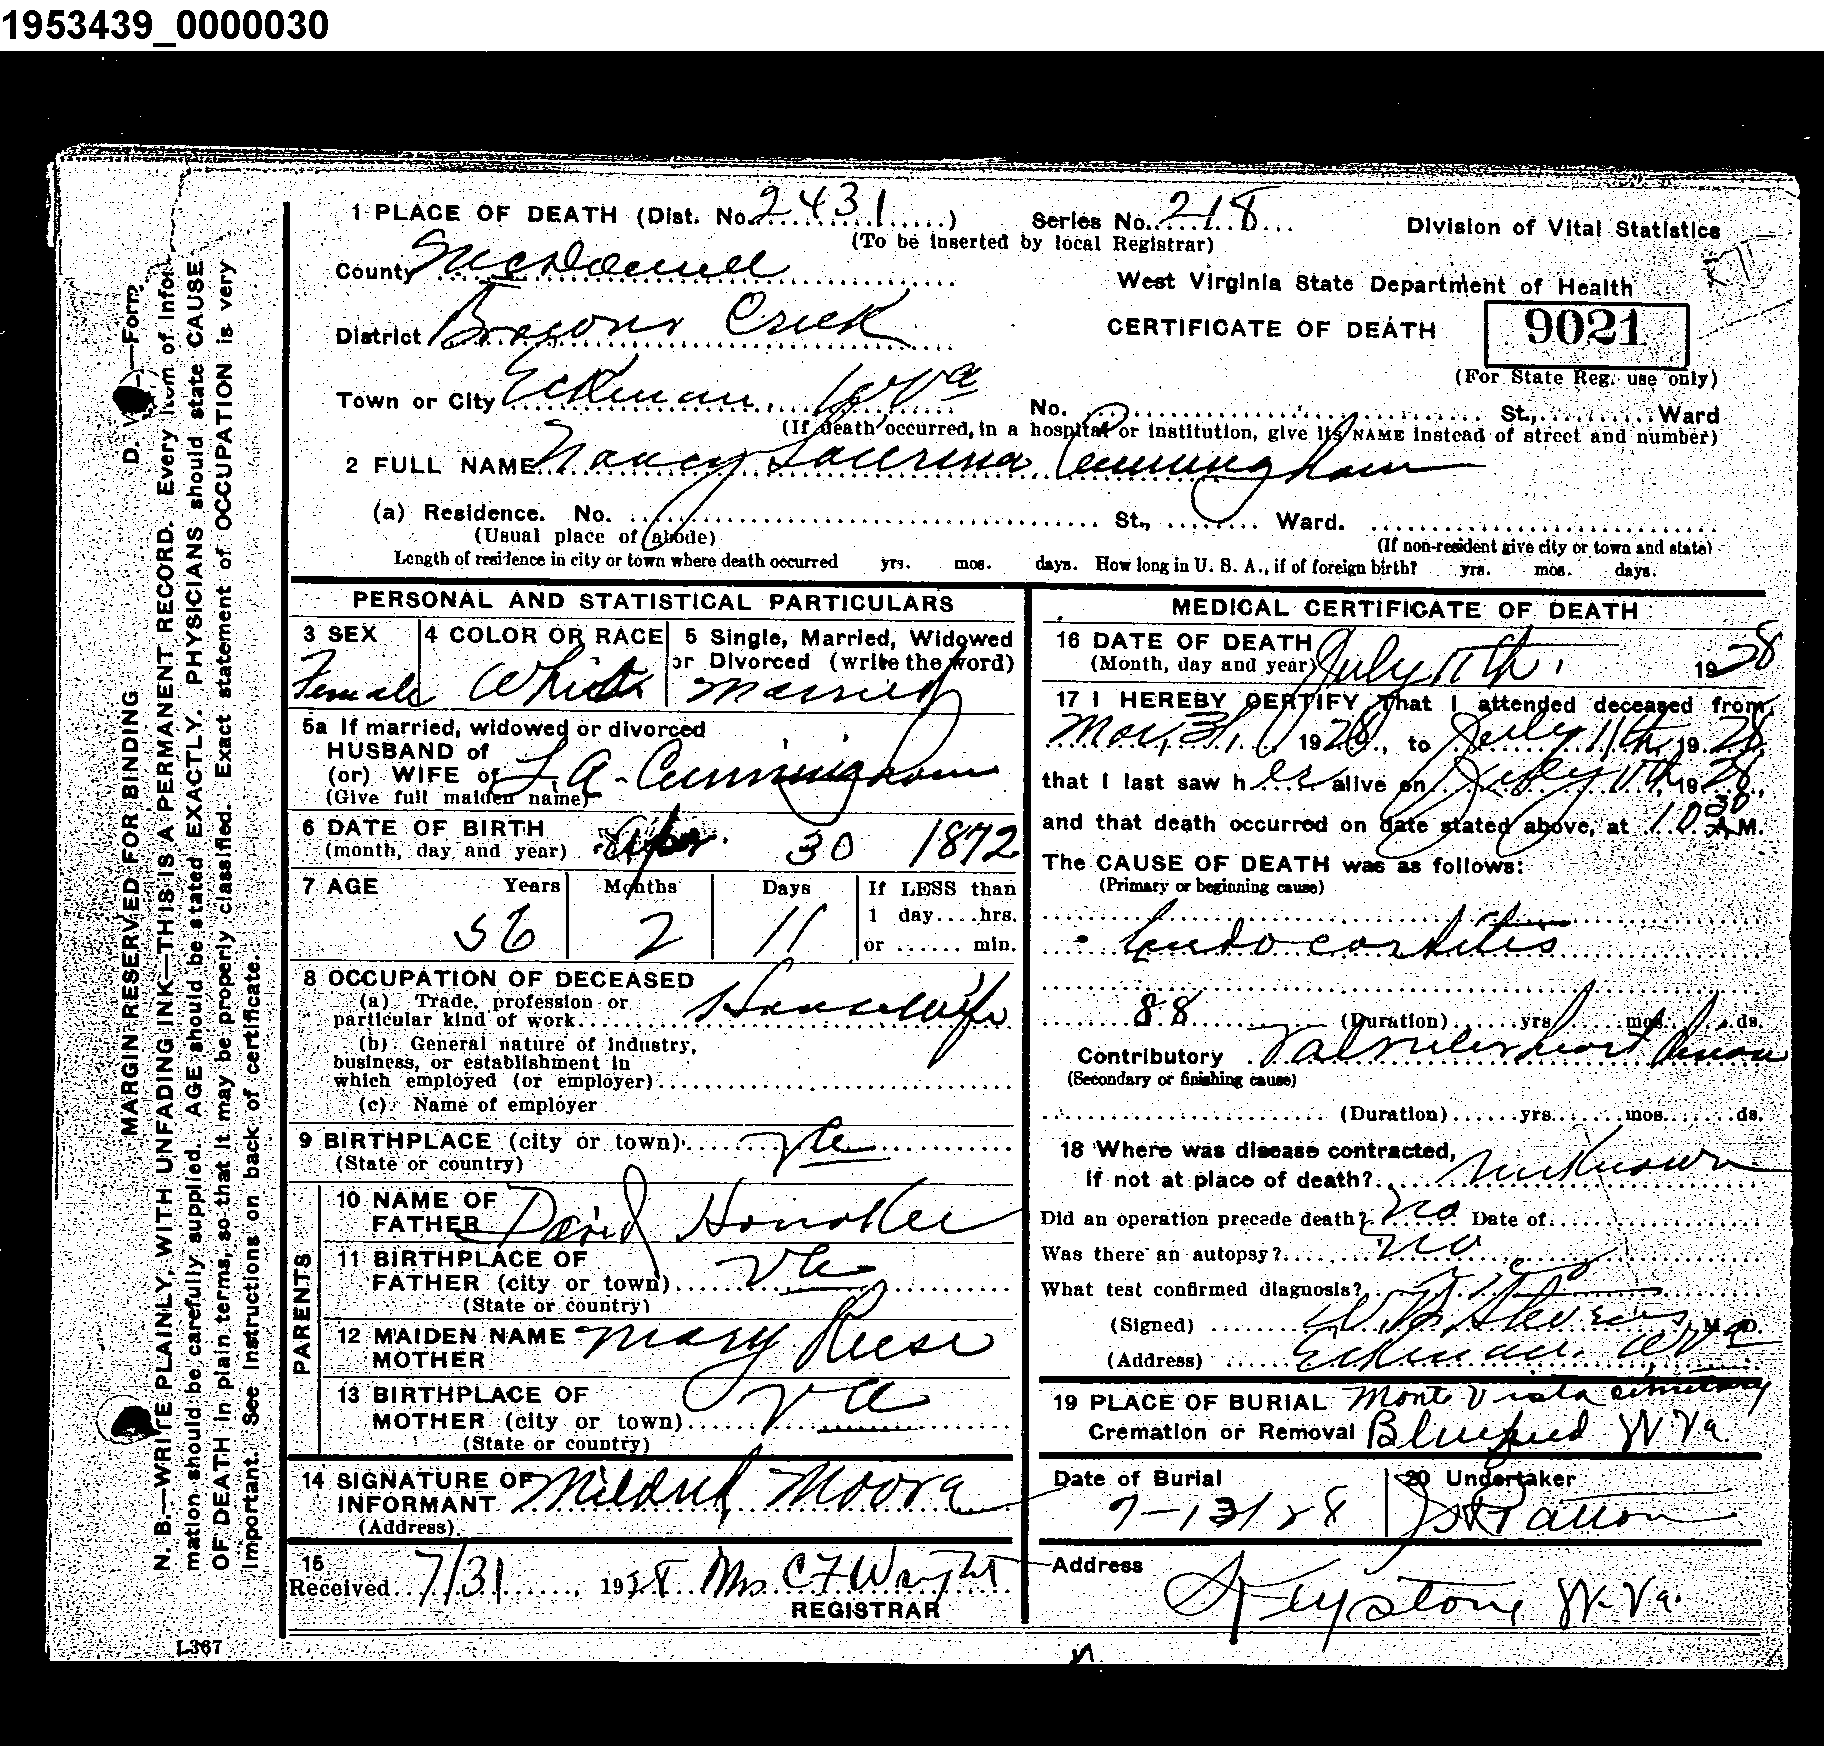 1953439_0000030
1 PLACE OF DEATH (Dist. No. 2431) Series No. 218 Division of Vital Statistics
(To be inserted by local Registrar)
County McDowell
West Virginia State Department of Health
District Browns Creek
CERTIFICATE OF DEATH 9021
(For State Reg. use only)
Town or City Eckman, W Va No. St., Ward
(If death occurred, in a hospital or institution, give its NAME instead of street and number)
2 FULL NAME Nancy Cunningham
(a) Residence. No. St., Ward.
(Usual place of abode) (If non-resident give city or town and state)
Length of residence in city or town where death occurred yrs. mos. days. How long in U. S. A., if of foreign birth? yrs. mos. days.
PERSONAL AND STATISTICAL PARTICULARS
3 SEX 4 COLOR OR RACE 5 Single, Married, Widowed
or Divorced (write the word)
Female White Married
5a If married, widowed or divorced
HUSBAND of
(or) WIFE of L. A. Cunningham
(Give full maiden name)
6 DATE OF BIRTH
(month, day and year) Apr. 30 1872
7 AGE Years Months Days If LESS than
1 day....hrs.
56 2 11 or ...... min.
8 OCCUPATION OF DECEASED
(a) Trade, profession or
particular kind of work Housewife
(b) General nature of industry,
business, or establishment in
which employed (or employer)
(c) Name of employer
9 BIRTHPLACE (city or town) Va
(State or country)
PARENTS
10 NAME OF
FATHER David Honaker
11 BIRTHPLACE OF
FATHER (city or town) Va
(State or country)
12 MAIDEN NAME Mary Reese
MOTHER
13 BIRTHPLACE OF
MOTHER (city or town) Va
(State or country)
14 SIGNATURE OF
INFORMANT Mildred Moore
(Address)
15
Received 7/31, 1928 Mrs C F Wright
REGISTRAR
MEDICAL CERTIFICATE OF DEATH
16 DATE OF DEATH
(Month, day and year) July 11th. 1928
17 I HEREBY CERTIFY, That I attended deceased from
Mar, 31, 1928, to July 11th, 1928,
that I last saw her alive on July 11th, 1928,
and that death occurred on date stated above, at 10 30 A.M.
The CAUSE OF DEATH was as follows:
(Primary or beginning cause)
Endocarditis
88 (Duration) yrs. mos. ds.
Contributory Valvular heart
(Secondary or finishing cause)
(Duration) yrs. mos. ds.
18 Where was disease contracted,
if not at place of death? unknown
Did an operation precede death? No Date of
Was there an autopsy? no
What test confirmed diagnosis?
(Signed) W. B. Stevens M. D.
(Address) Eckman. W Va
19 PLACE OF BURIAL Monte Vista cemetary
Cremation or Removal Bluefield W Va
Date of Burial 20 Undertaker
7-13/28 Patton
Address
Keystone W. Va.
MARGIN RESERVED FOR BINDING
N. B.—WRITE PLAINLY, WITH UNFADING INK—THIS IS A PERMANENT RECORD. Every item of infor-
mation should be carefully supplied. AGE should be stated EXACTLY. PHYSICIANS should state CAUSE
OF DEATH in plain terms, so that it may be properly classified. Exact statement of OCCUPATION is very
important. See instructions on back of certificate.
L367